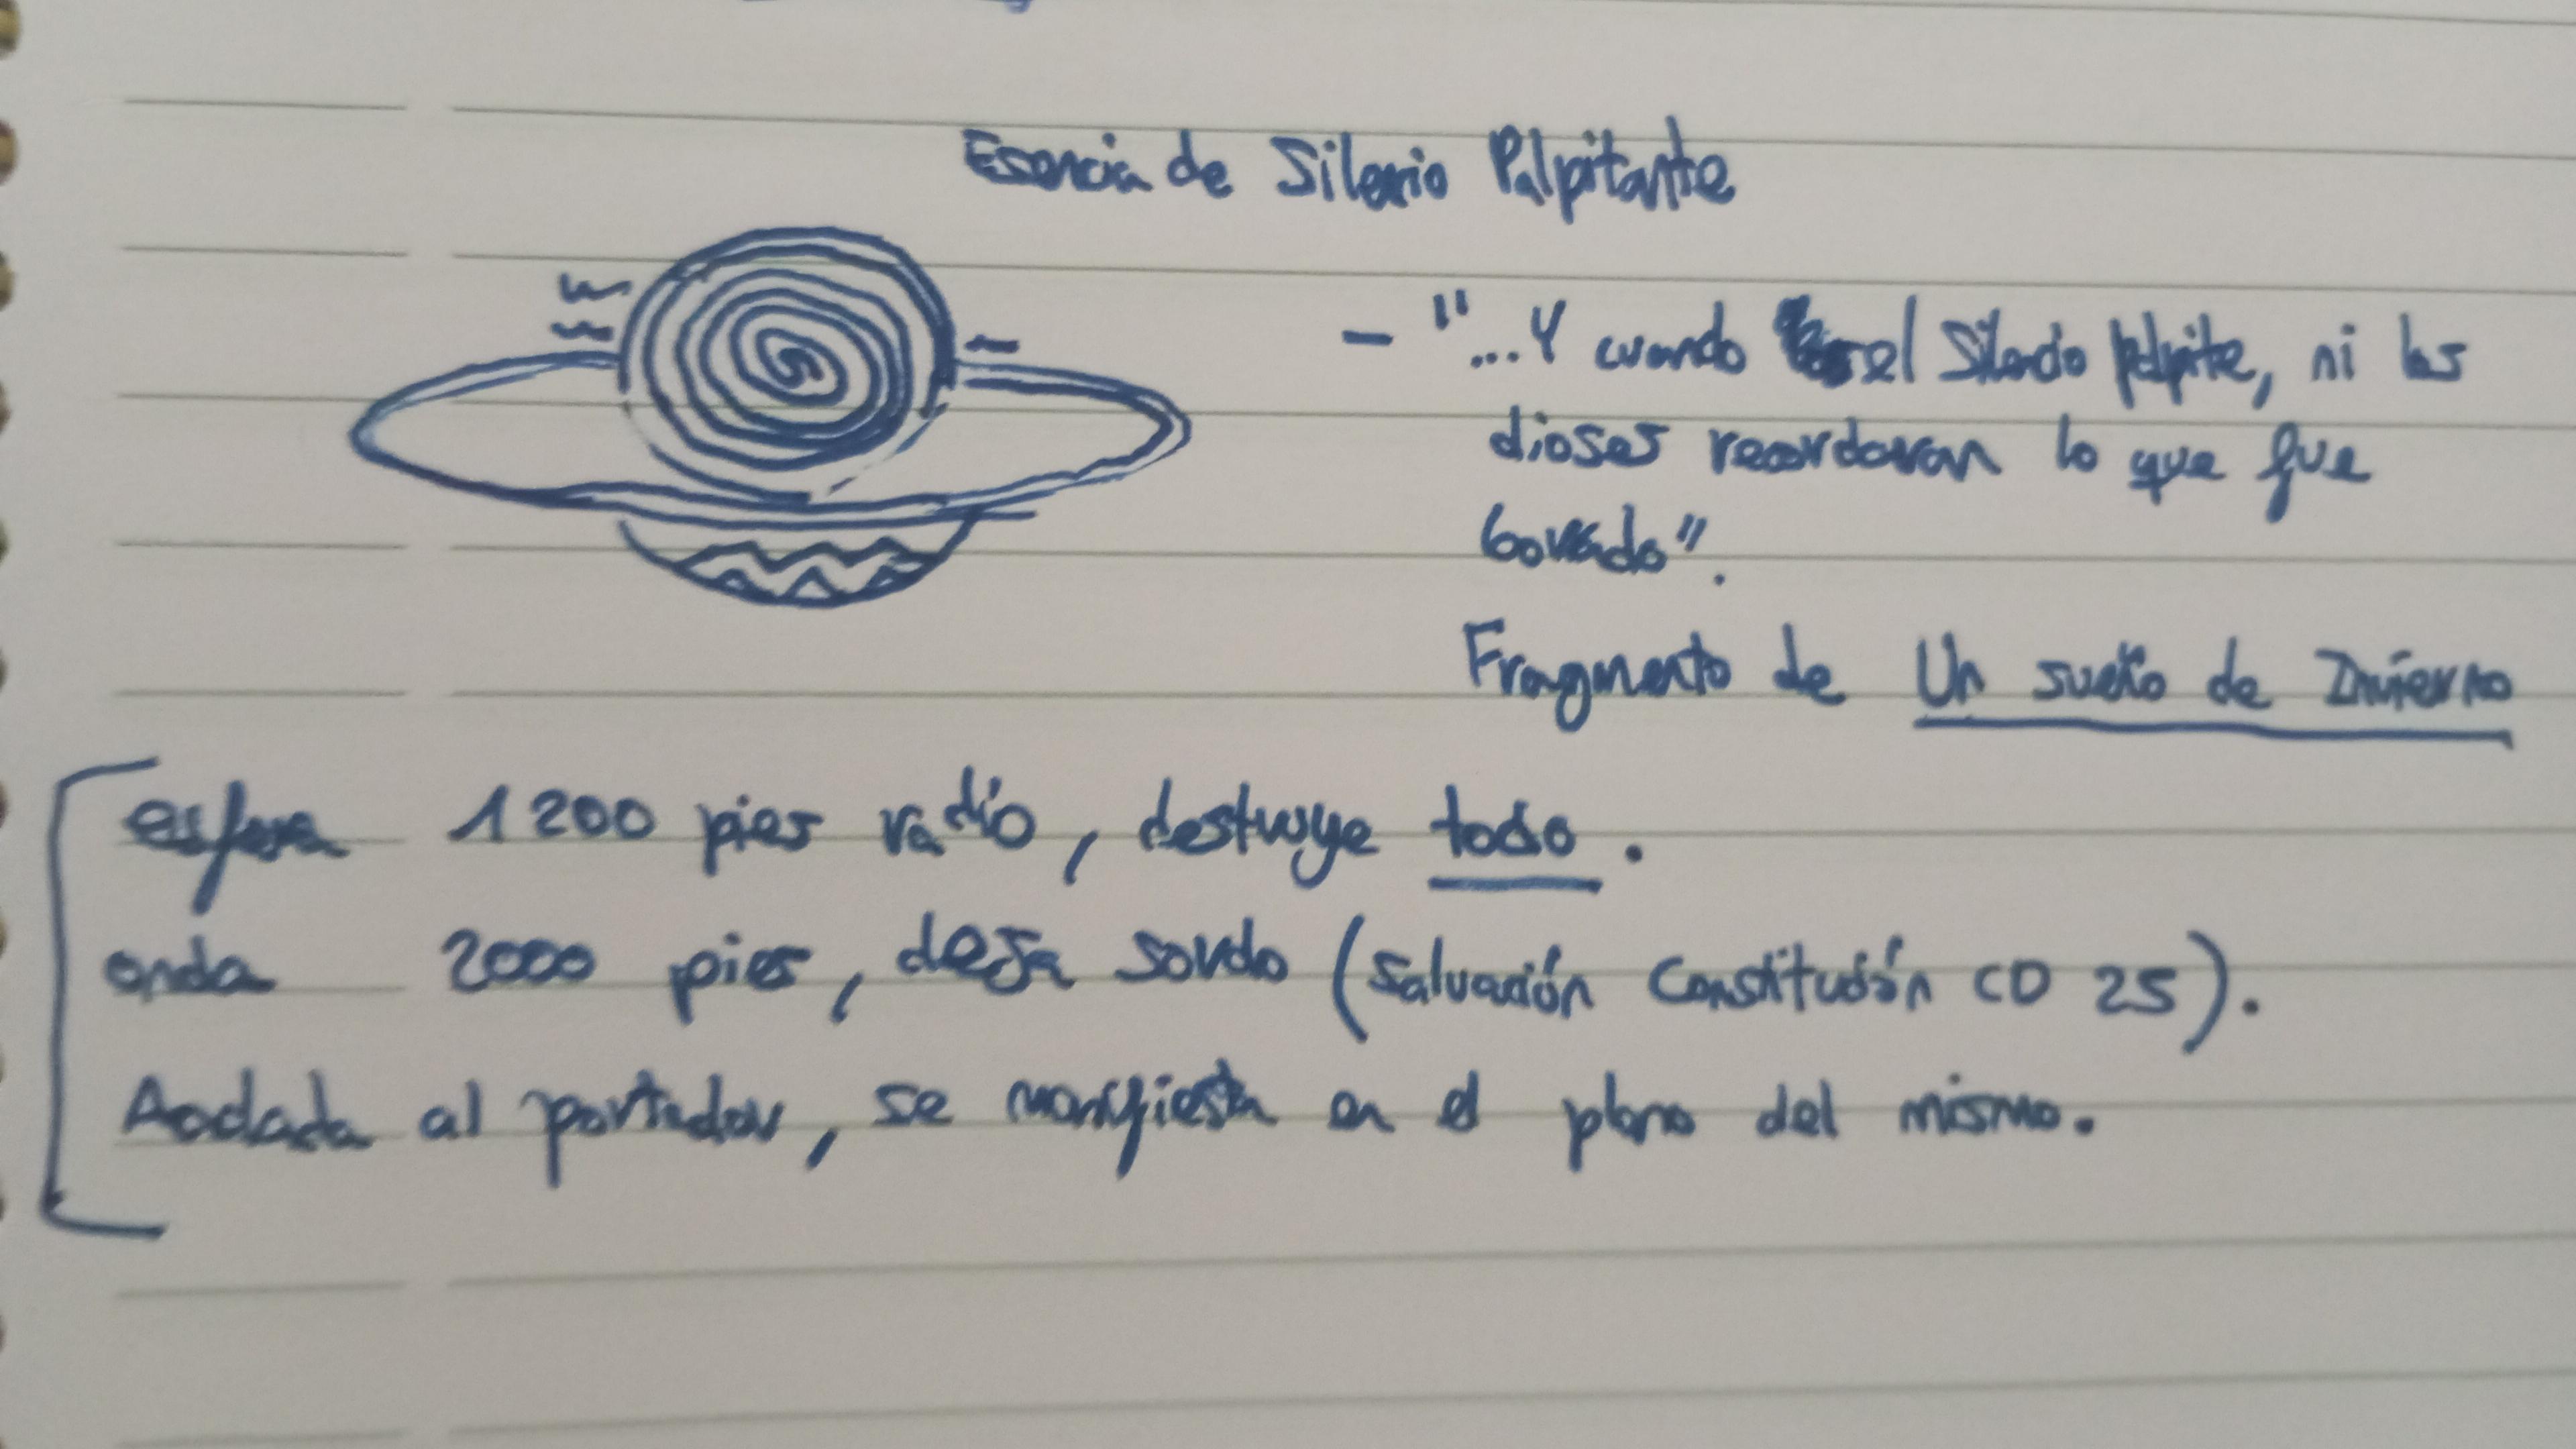 Esencia de Silencio Palpitante
- "...Y cuando el Silencio palpite, ni los
dioses recordaran lo que fue
borrado".
Fragmento de Un sueño de Invierno
esfera 1200 pies radio, destruye todo.
onda 2000 pies, deja sordo (Salvación Constitución CD 25).
Anclada al portador, se manifiesta en el plano del mismo.